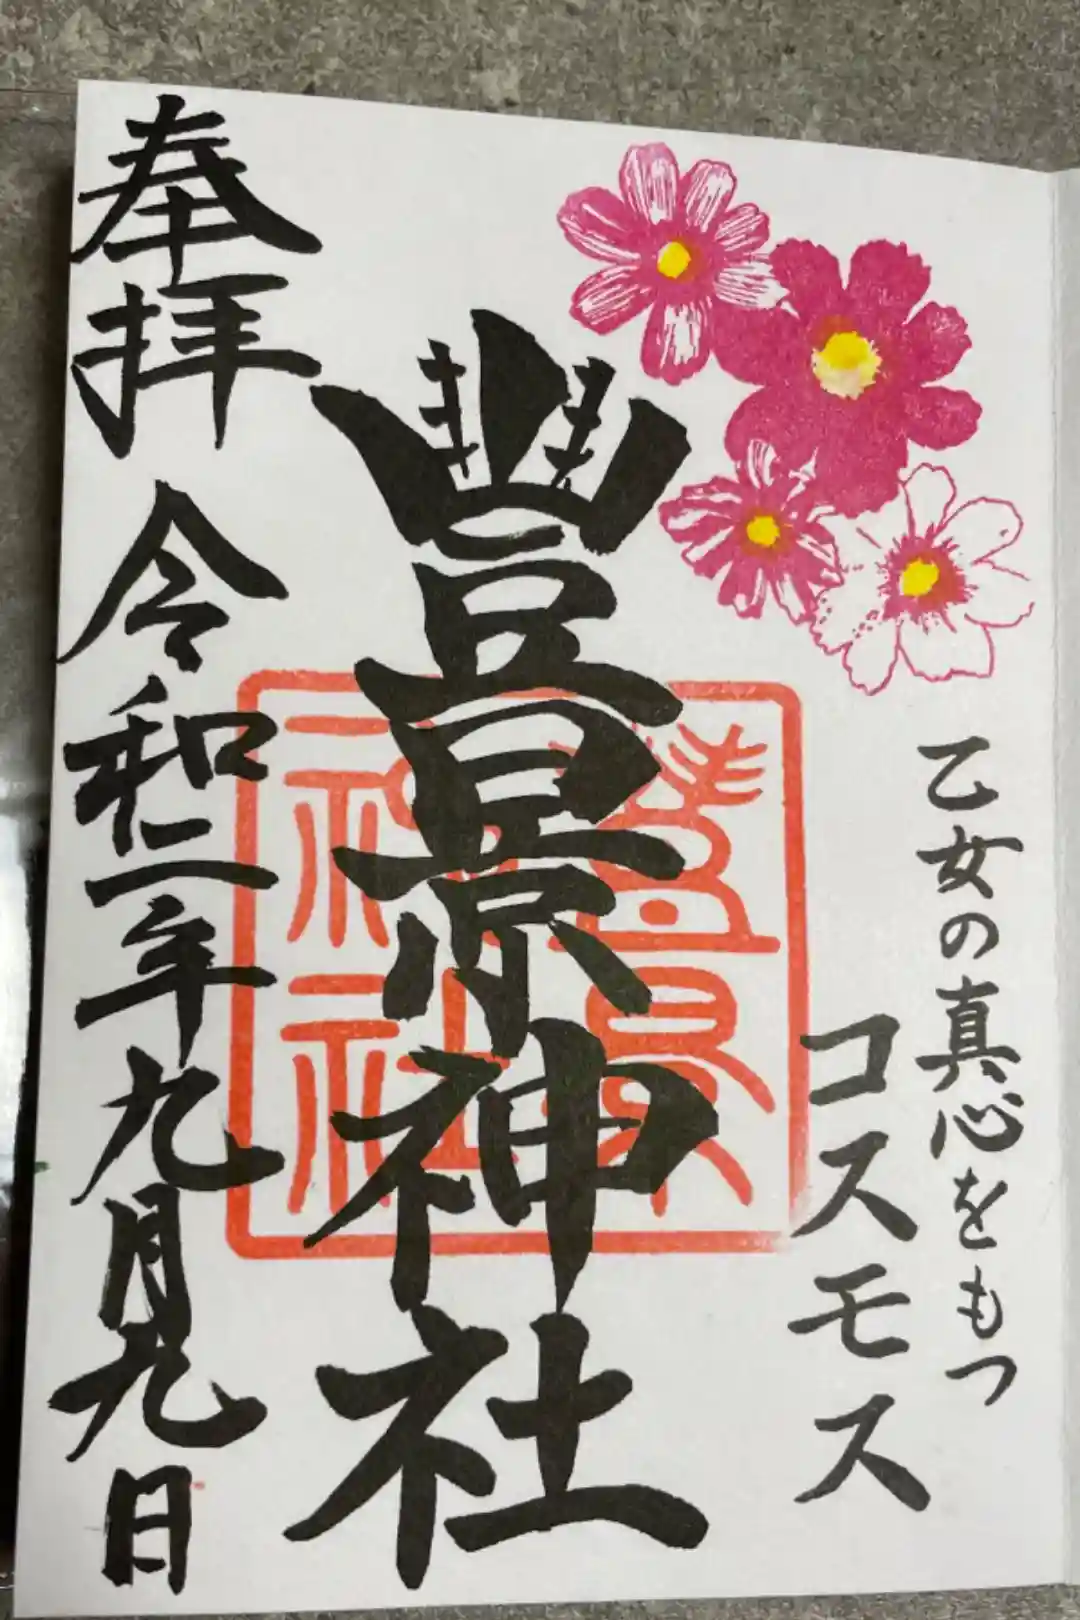 乙女の真心をもつ
コスモス
豊景神社
豊景神社
奉拝 令和二年九月九日